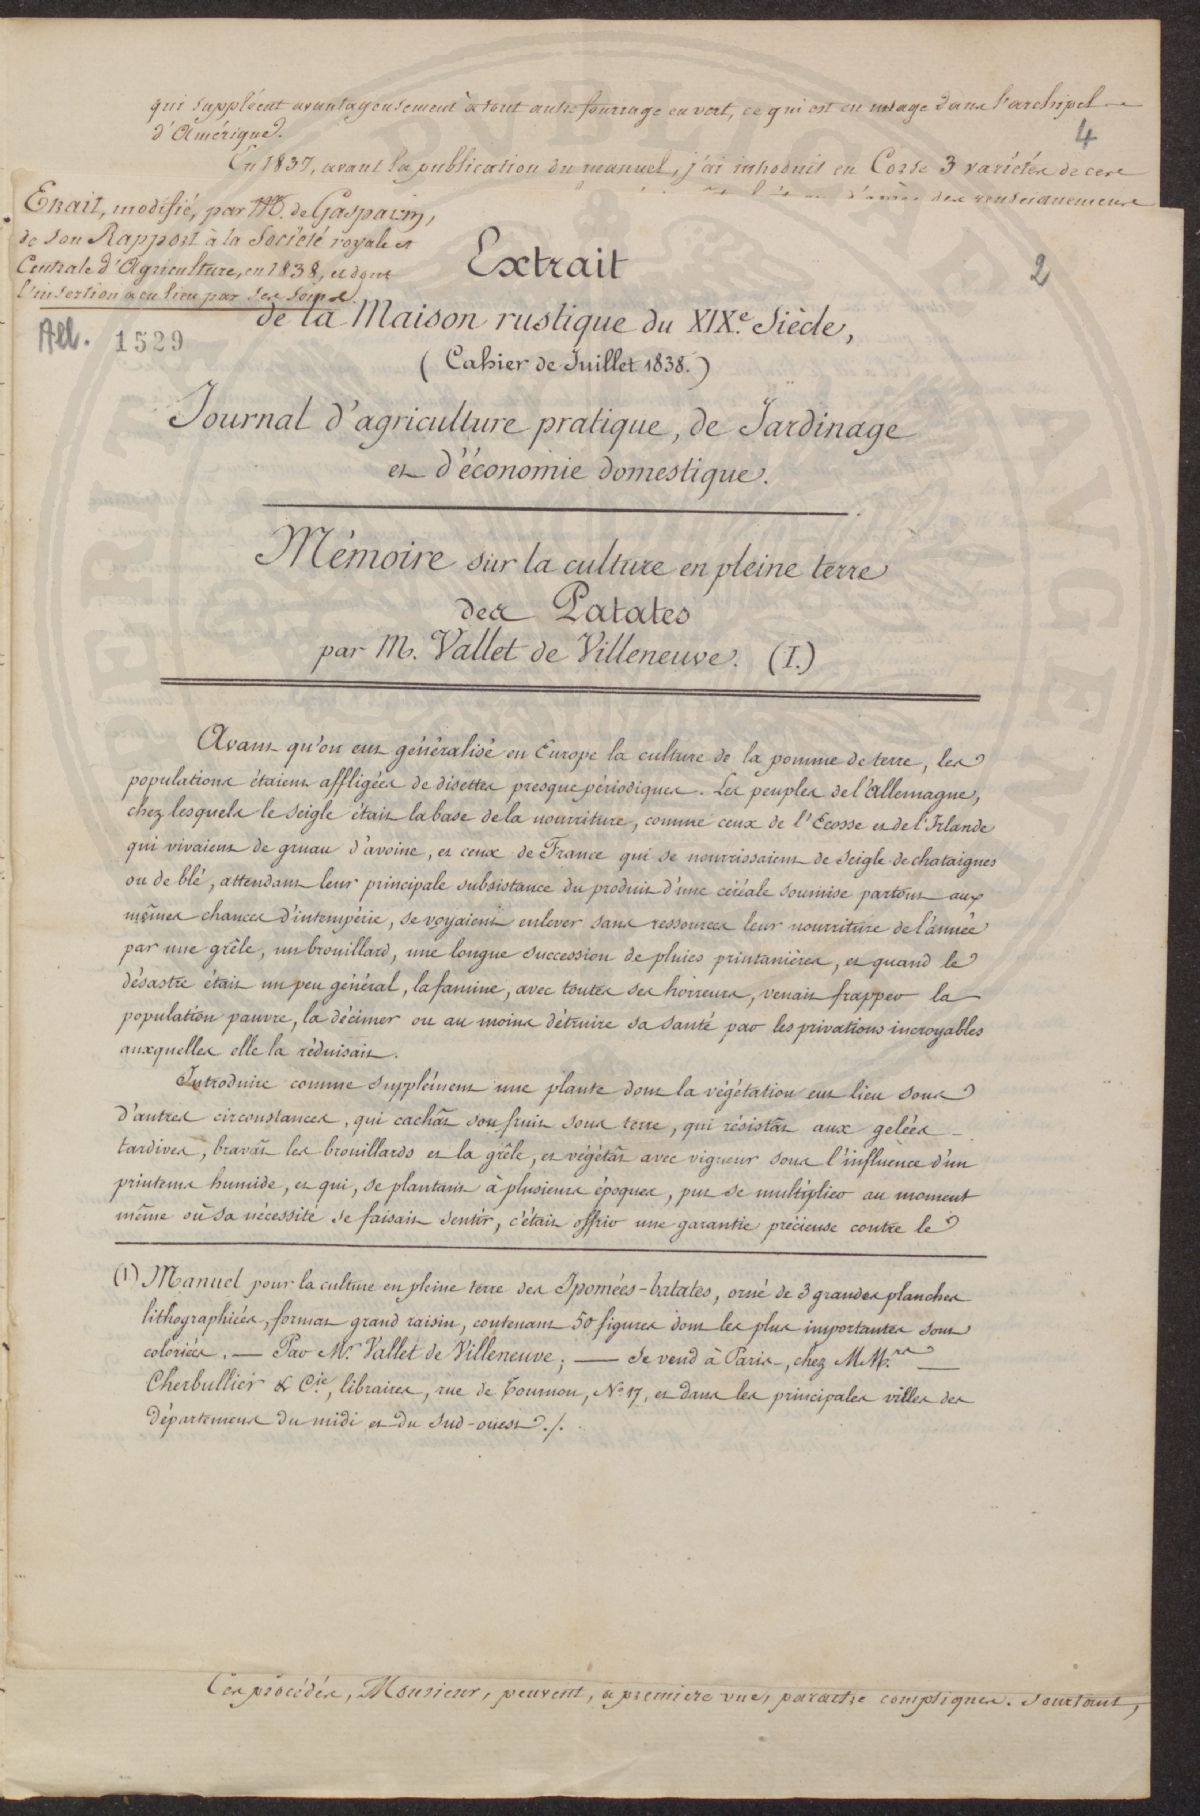 qui suppléent avantageusement à tout autre fourrage en vert, ce qui est en usage dans l'archipel
d'Amérique.
4
En 1837, avant la publication du manuel, j'ai introduit en Corse 3 variétés de ces
d'après des renseignemens
Extrait, modifié, par M. de Gasparin,
de son Rapport à la Société royale et
Centrale d'Agriculture, en 1838, et dont
l'insertion a eu lieu par ses soins.
2
All. 1529
Extrait
de la Maison rustique du XIXe Siècle,
(Cahier de Juillet 1838.)
Journal d'agriculture pratique, de Jardinage
et d'économie domestique.
Mémoire sur la culture en pleine terre
des Patates
par M. Vallet de Villeneuve. (I.)
Avant qu'on eut généralisé en Europe la culture de la pomme de terre, les
populations étaient affligées de disettes presque périodiques. Les peuples de l'Allemagne,
chez lesquels le seigle était la base de la nourriture, comme ceux de l'Ecosse et de l'Irlande
qui vivaient de gruau d'avoine, et ceux de France qui se nourrissaient de seigle de chataignes
ou de blé, attendant leur principale subsistance du produit d'une céréale soumise partout aux
mêmes chances d'intempérie, se voyaient enlever sans ressources leur nourriture de l'année
par une grêle, un brouillard, une longue succession de pluies printanières, et quand le
désastre était un peu général, la famine, avec toutes ses horreurs, venait frapper la
population pauvre, la décimer ou au moins détruire sa santé par les privations incroyables
auxquelles elle la réduisait.
Introduire comme supplément une plante dont la végétation eut lieu sous
d'autres circonstances, qui cachât son fruit sous terre, qui résistât aux gelées
tardives, bravât les brouillards et la grêle, et végétât avec vigueur sous l'influence d'un
printems humide, et qui, se plantant à plusieurs époques, put se multiplier au moment
même où sa nécessité se faisait sentir, c'était offrir une garantie précieuse contre le
(1) Manuel pour la culture en pleine terre des Ipomées-batates, orné de 3 grandes planches
lithographiées, format grand raisin, contenant 50 figures dont les plus importantes sont
coloriées. — Par Mr. Vallet de Villeneuve; — Se vend à Paris, chez MM.rs
Cherbullier & Cie, libraires, rue de Tournon, No 17, et dans les principales villes des
départemens du midi et du sud-ouest./.
Ces procédés, Monsieur, peuvent, a premiere vue, paraitre compliqués. Pourtant,